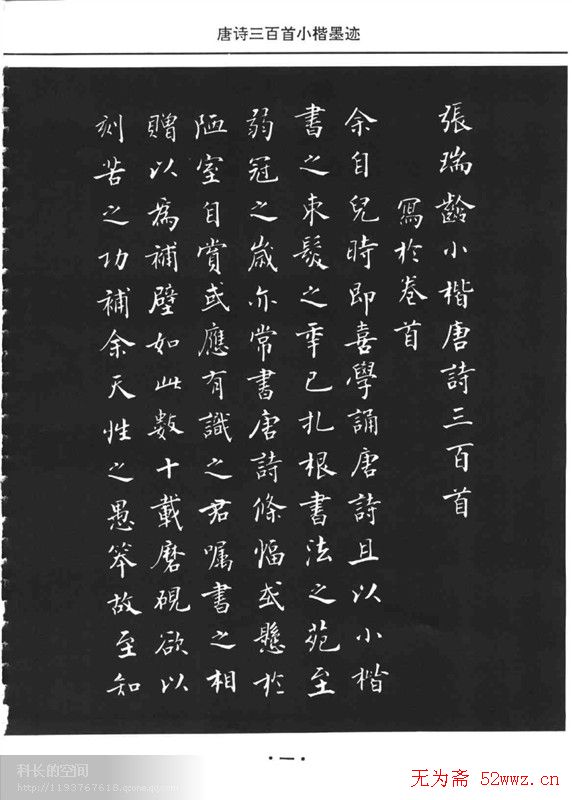 唐诗三百首小楷墨迹
張瑞齡小楷唐詩三百首
寫於卷首
余自兒時即喜學誦唐詩且以小楷
書之束髮之年已扎根書法之苑至
弱冠之歲亦常書唐詩條幅或懸於
陋室自賞或應有識之君嘱書之相
贈以為補壁如此數十載磨硯欲以
刻苦之功補余天性之愚笨故至知
·一·
科长的空间
http://1193767618.qzone.qq.com
无为斋 52wwz.cn